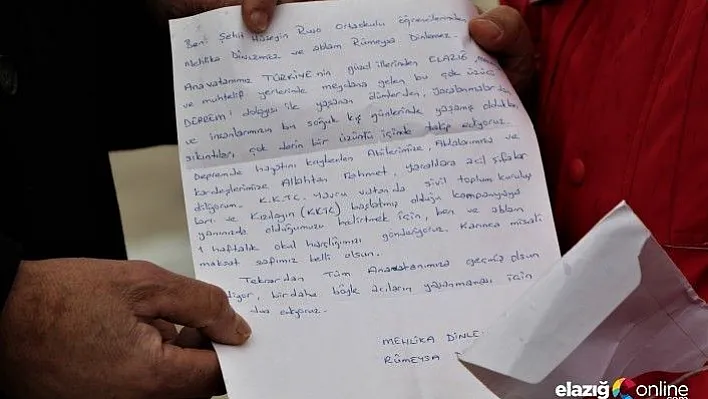 Ben: Şehit Hüseyin Ruso Ortaokulu öğrencilerinden
Mehlika Dinlemez ve ablam Rümeysa Dinlemez.
Anavatanımız TÜRKİYE'nin güzel illerinden ELAZIĞ,
ve muhtelif yerlerinde meydana gelen bu çok üzücü
DEPREM! dolayısı ile yaşanan ölümlerden, yaralanmalardan
ve insanlarımızın bu soğuk kış günlerinde yaşamış oldukları
sıkıntıları, çok derin bir üzüntü içinde takip ediyoruz.
Depremde hayatını kaybeden Abilerimize, Ablalarımıza ve
kardeşlerimize Allahtan Rahmet, yaralılara acil şifalar
diliyorum. K.K.T.C. Yavru vatanda sivil toplum kuruluş
ları ve Kızılayın (KKTC) başlatmış olduğu kampanyada
yanınızda olduğumuzu belirtmek için, ben ve ablam
1 haftalık okul harçlığımızı gönderiyoruz. Karınca misali
maksat safımız belli olsun.
Tekrardan Tüm Anavatanımıza geçmiş olsun
diyor, birdaha böyle acıların yaşanmaması için
dua ediyoruz.
MEHLİKA DİNLE
RÜMEYSA
elazığ online
.com